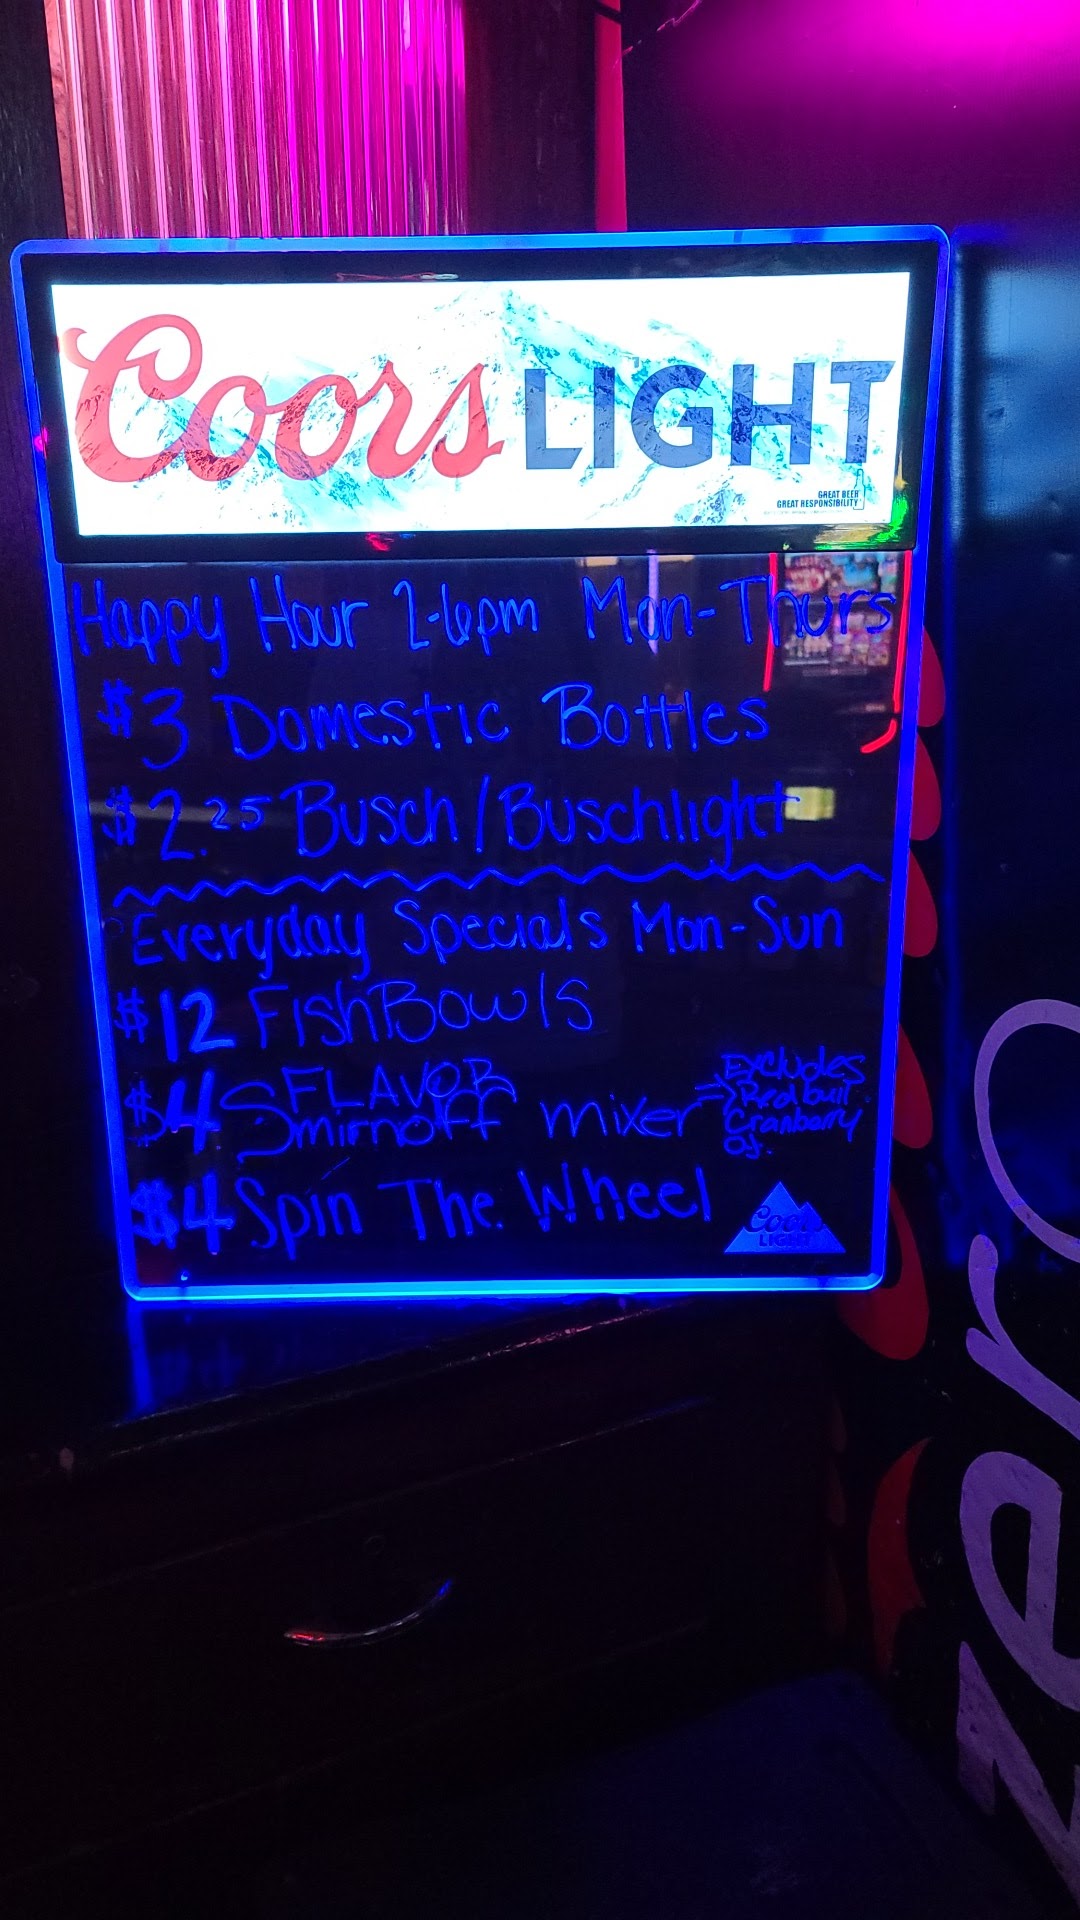 Coors LIGHT
GREAT BEER
GREAT RESPONSIBILITY
Happy Hour 2-6pm Mon-Thurs
$3 Domestic Bottles
$2.25 Busch/Buschlight
Everyday Specials Mon-Sun
$12 FishBowls
$4 Smirnoff mixer
FLAVOR
Excludes
Redbull
Cranberry
OJ.
$4 Spin The Wheel
Coors
LIGHT